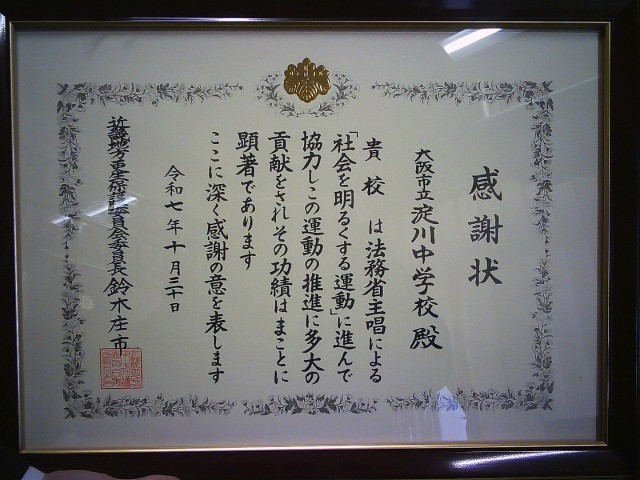 感謝状
大阪市立淀川中学校殿
貴校は法務省主唱による
「社会を明るくする運動」に進んで
協力しこの運動の推進に多大の
貢献をされその功績はまことに
顕著であります
ここに深く感謝の意を表します
令和七年十月三十日
近畿地方更生保護委員会委員長鈴木庄市